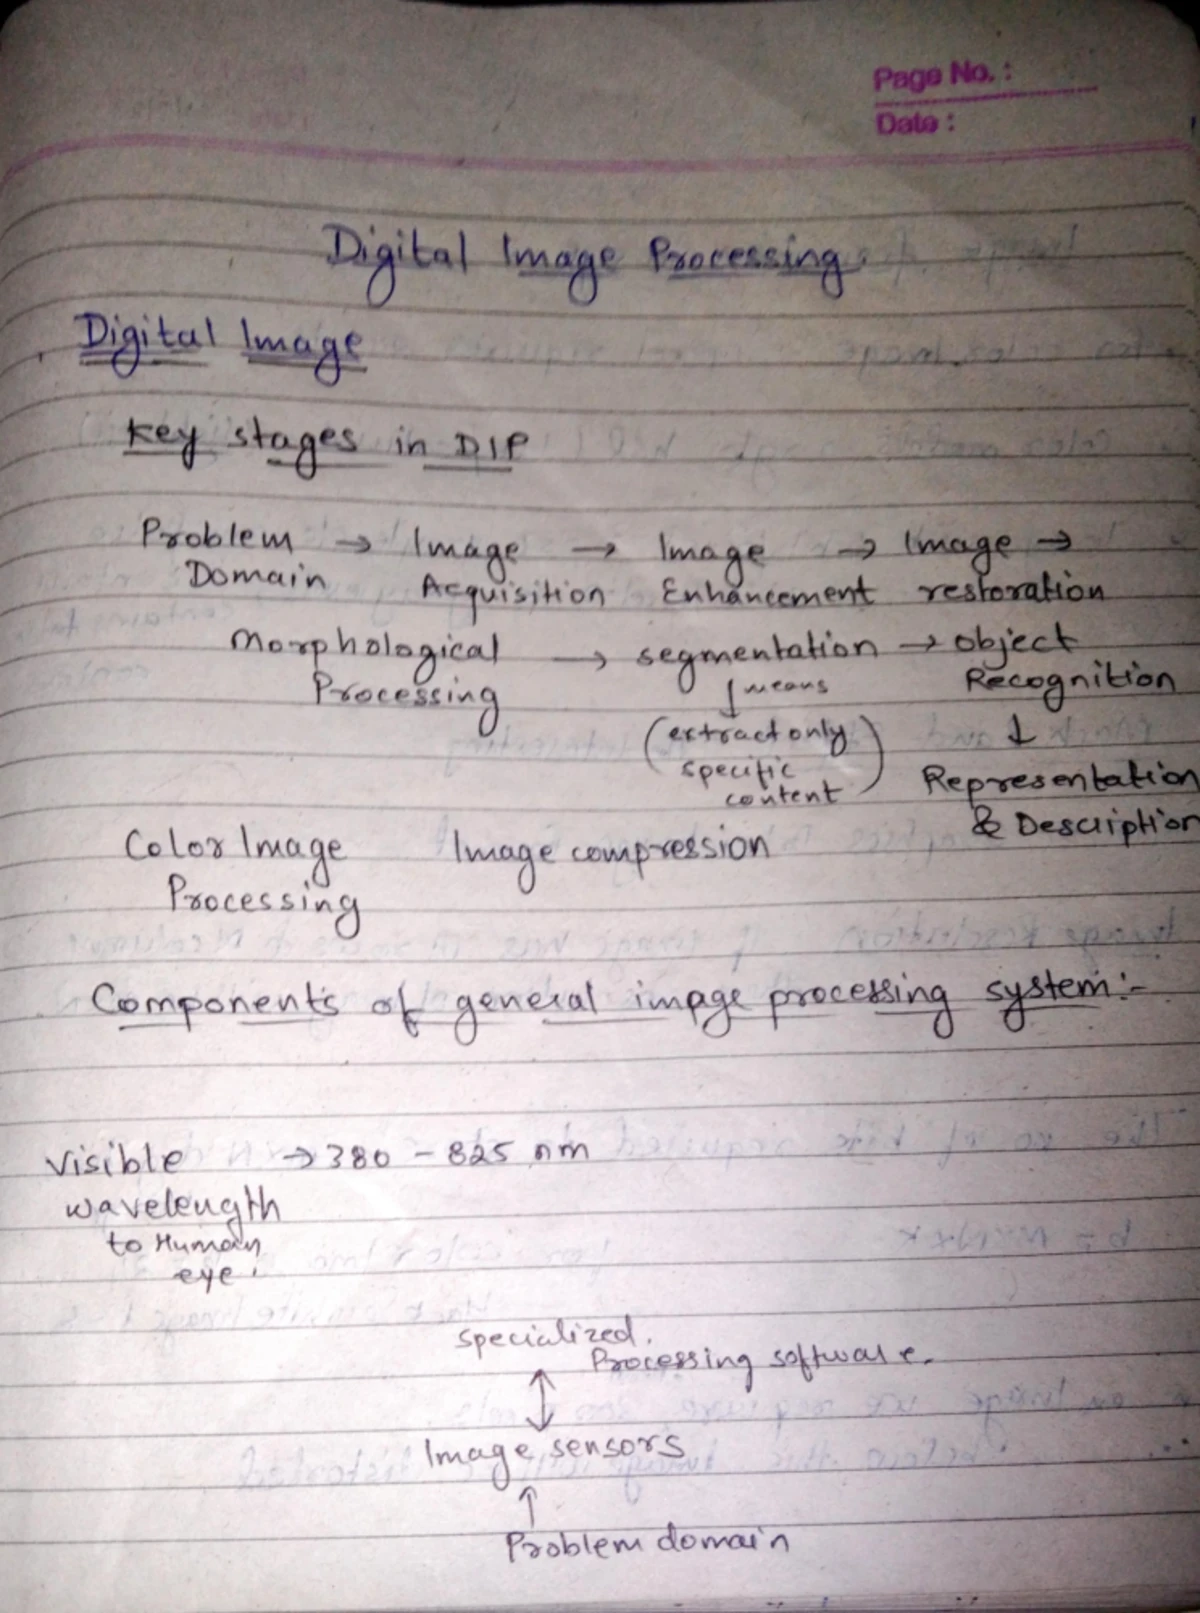 Page No. :
Date :
Digital Image Processing
Digital Image
Key stages in DIP
Problem → Image → Image → Image →
Domain Acquisition Enhancement restoration
Morphological → segmentation → object
Processing ↓ means Recognition
(extract only ↓
specific Representation
content) & Description
Color Image Image compression
Processing
Components of general impge processing system:-
Visible → 380 - 825 nm
wavelength
to Human
eye.
specialized.
Processing software.
↕
Image sensors
↑
Problem domain